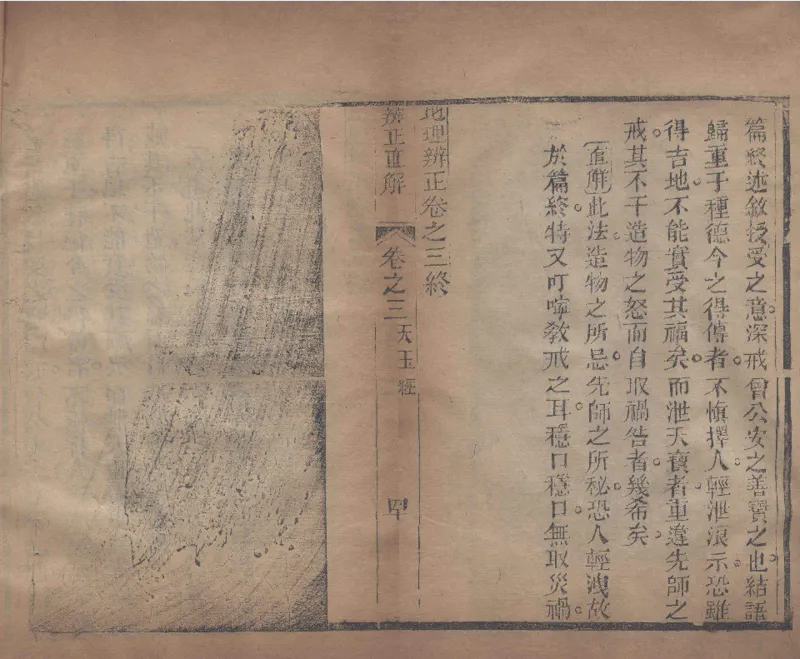 篇終述敘授受之意深戒曾公安之善寶之也結語
歸重于種德今之得傳者不慎擇人輕泄浪示恐雖
得吉地不能實受其福矣而泄天寶者重違先師之
戒其不干造物之怒而自取禍咎者幾希矣
直解此法造物之所忌先師之所秘恐人輕洩故
於篇終特又叮嚀教戒之耳穩口穩口無取災禍
地理辨正卷之三終
辨正直解 卷之三 天玉經